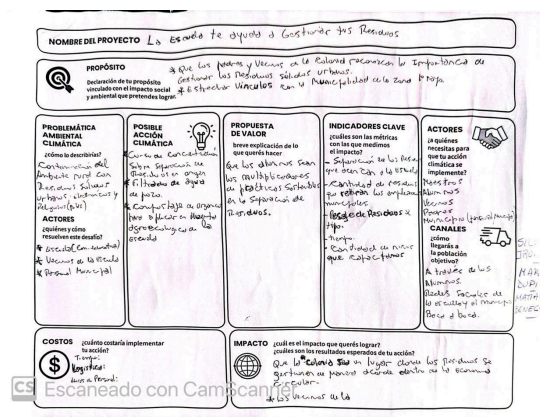 NOMBRE DEL PROYECTO La Escuela te ayuda a Gestionar tus Residuos
PROPÓSITO
Declaración de tu propósito
vinculado con el impacto social
y ambiental que pretendes lograr.
* Que los padres y Vecinos de la Colonia reconozcan la Importancia de
Gestionar los Residuos sólidos urbanos.
* Estrechar Vínculos con la Municipalidad de la zona
PROBLEMÁTICA
AMBIENTAL
CLIMÁTICA
¿cómo lo describirías?
Contaminación del
Ambiente rural con
Residuos Sólidos
urbanos, electrónicos y
Peligrosos (pilas)
ACTORES
¿quiénes y cómo
resuelven este desafío?
* Escuela (Com. educativa)
* Vecinos de la Escuela
* Personal Municipal
POSIBLE
ACCIÓN
CLIMÁTICA
Sobre Separación de
Residuos en origen
* Filtrados de agua
de pozo.
* Compostaje de orgánicos
para aplicar en Huerta
agroecológica de la
escuela
PROPUESTA
DE VALOR
breve explicación de lo
que querés hacer
Que los alumnos sean
los multiplicadores
de prácticas Sostenibles
en la Separación de
Residuos.
INDICADORES CLAVE
¿cuáles son las métricas
con las que medimos
el impacto?
- Separación de los Residuos
que acercan a la Escuela
- Cantidad de residuos
que retiran los empleados
municipales
- Pesaje de Residuos x
tipo.
- tiempo.
- Cantidad de niños
que capacitamos
ACTORES
¿a quiénes
necesitas para
que tu acción
climática se
implemente?
Maestros
Alumnos
Vecinos
Padres
Municipio
CANALES
¿cómo
llegarás a
la población
objetivo?
A través de los
Alumnos.
Redes Sociales de
la escuela y el municipio
Boca a boca.
COSTOS
¿cuánto costaría implementar
tu acción?
Tiempo:
Logística:
IMPACTO
¿cuál es el impacto que querés lograr?
¿cuáles son los resultados esperados de tu acción?
Que la Colonia Sea un lugar donde los Residuos se
gestionen de manera acorde dentro de la economía
Circular.
* los Vecinos de la
CS Escaneado con CamScanner